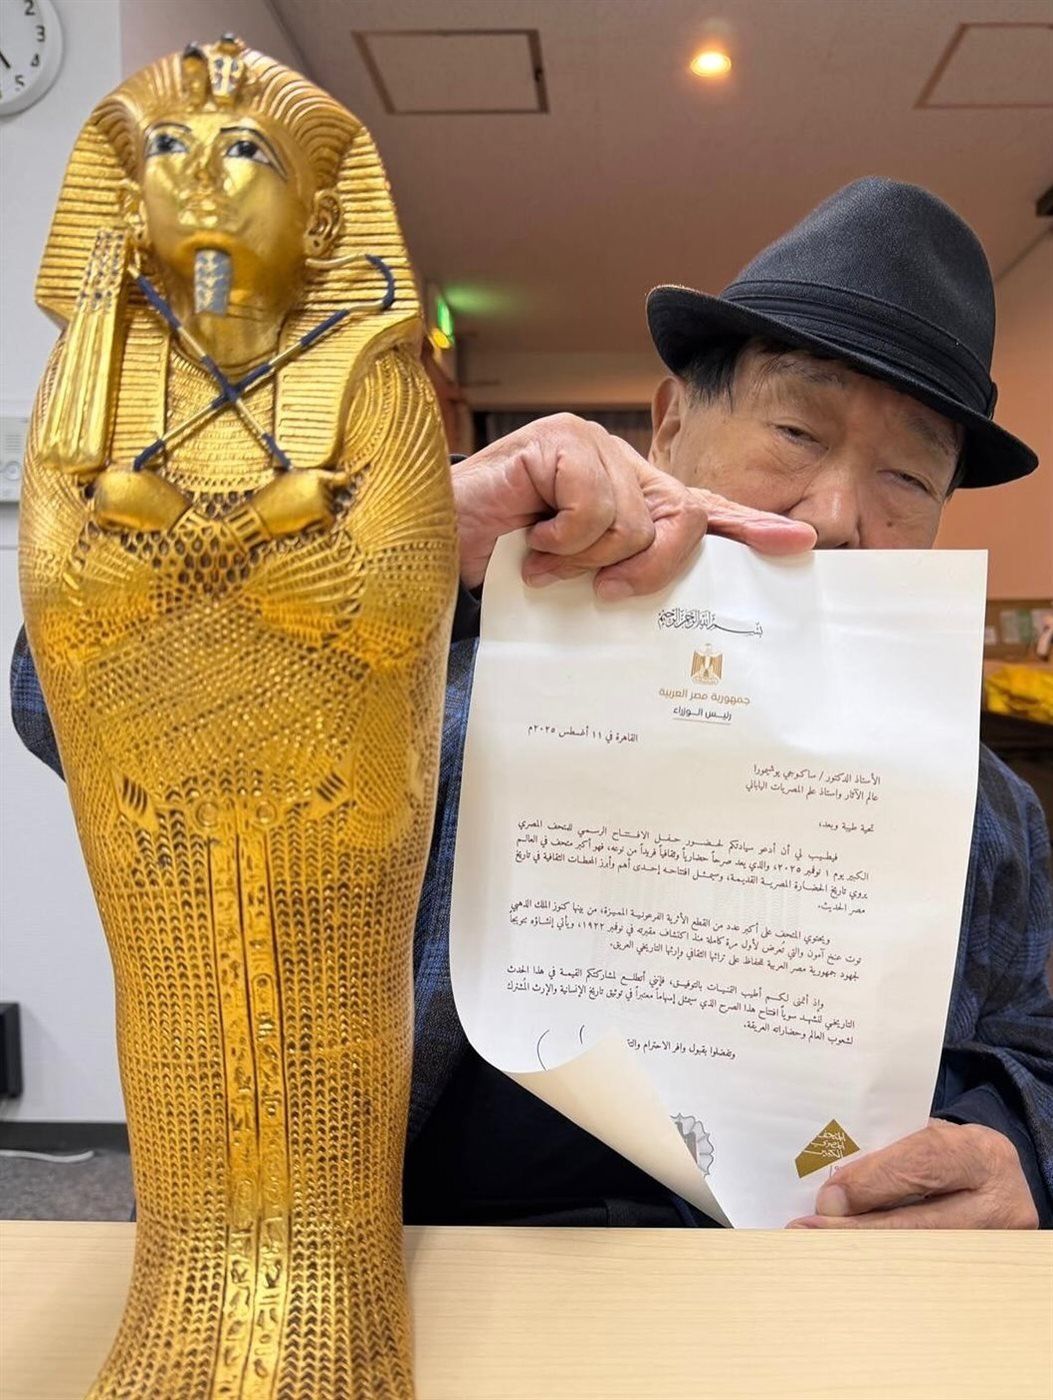 2
3
4
5
بسم الله الرحمن الرحيم
جمهورية مصر العربية
رئيس الوزراء
القاهرة في ١١ أغسطس ٢٠٢٥م
الأستاذ الدكتور / ساكوجي يوشيمورا
عالم الآثار واستاذ علم المصريات الياباني
تحية طيبة وبعد،
فيطيب لي أن أدعو سيادتكم لحضور حفل الافتتاح الرسمي للمتحف المصري
الكبير يوم ١ نوفمبر ٢٠٢٥، والذي يعد صرحاً حضارياً وثقافياً فريداً من نوعه، فهو أكبر متحف في العالم
يروي تاريخ الحضارة المصرية القديمة، وسيمثل افتتاحه إحدى أهم وأبرز المحطات الثقافية في تاريخ
مصر الحديث.
ويحتوي المتحف على أكبر عدد من القطع الأثرية الفرعونية المميزة، من بينها كنوز الملك الذهبي
توت عنخ آمون والتي تُعرض لأول مرة كاملة منذ اكتشاف مقبرته في نوفمبر ١٩٢٢، ويأتي إنشاؤه تتويجاً
لجهود جمهورية مصر العربية للحفاظ على تراثها الثقافي وإرثها التاريخي العريق.
وإذ أتمنى لكم أطيب التمنيات بالتوفيق، فإنني أتطلع لمشاركتكم القيمة في هذا الحدث
التاريخي لنشهد سوياً افتتاح هذا الصرح الذي سيمثل إسهاماً معتبراً في توثيق تاريخ الإنسانية والإرث المشترك
لشعوب العالم وحضاراته العريقة.
وتفضلوا بقبول وافر الاحترام
المتحف
المصري
الكبير